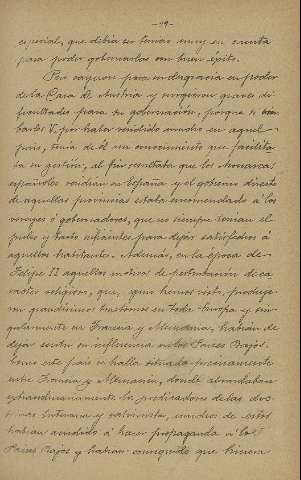 - 19 -
especial, que debía ser tenido muy en cuenta
para poder gobernarlos con buen éxito.
Pero cayeron para su desgracia en poder
de la Casa de Austria y surgieron graves di-
ficultades para su gobernación, porque si bien
Carlos V, por haber residido mucho en aquel
país, tenía de él un conocimiento que facilita-
ba su gestión, al fin resultaba que los Monarcas
españoles residían en España y el gobierno directo
de aquellas provincias estaba encomendado á los
virreyes ó gobernadores, que no siempre tenían el
pulso y tacto suficientes para dejar satisfechos á
aquellos habitantes. Además, en la época de
Felipe II aquellos motivos de perturbación de ca-
racter religioso, que, como hemos visto, produje-
ron grandísimos trastornos en toda Europa y sin-
gularmente en Francia y Alemania, habían de
dejar sentir su influencia en los Países Bajos.
Como este país se halla situado precisamente
entre Francia y Alemania, donde abundaban
extraordinariamente los predicadores de las doc-
trinas luterana y calvinista, muchos de estos
habían acudido á hacer propaganda á los
Países Bajos y habían conseguido que hiciera